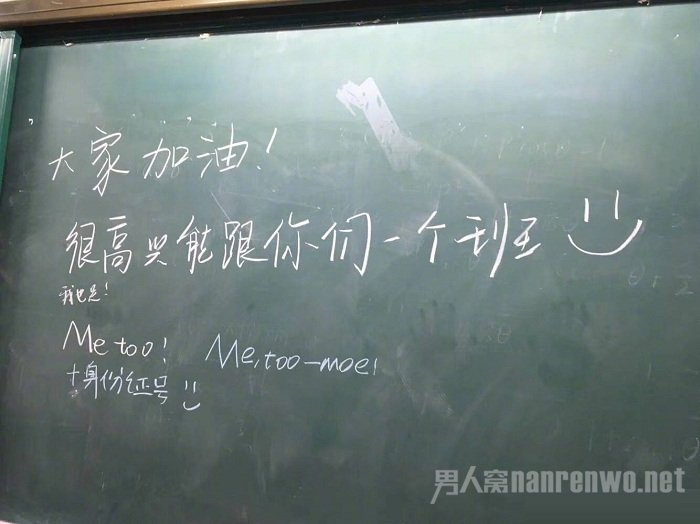 大家加油！
很高兴能跟你们一个班
我也是！
Me too! Me,too-moe!
+身份证号
男人窝nanrenwo.net